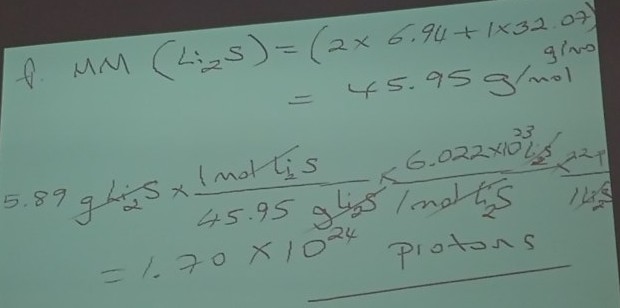 f. MM (Li₂S) = (2 x 6.94 + 1 x 32.07) g/mo
= 45.95 g/mol
5.89 g Li₂S x 1 mol Li₂S / 45.95 g Li₂S x 6.022 x 10²³ Li₂S / 1 mol Li₂S x 22 p / 1 Li₂S
= 1.70 x 10²⁴ protons